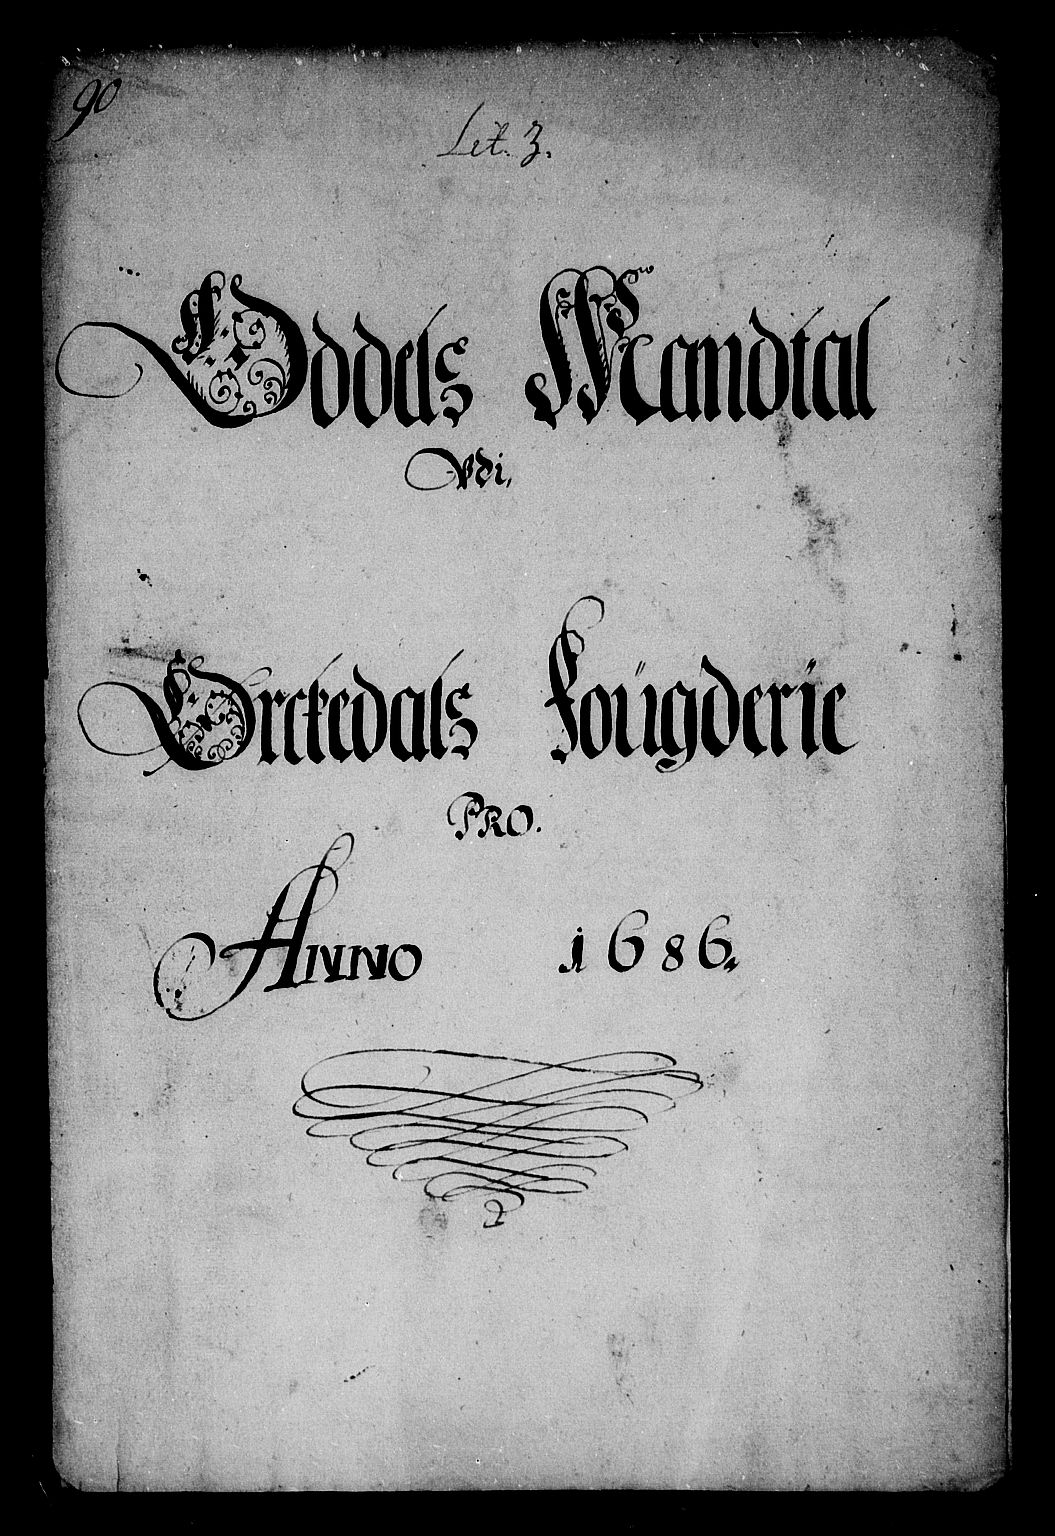 90
Lit. Z.
Oddels Mandtal
Vdi,
Orckedals Foügderie
PRO.
ANNO 1686.